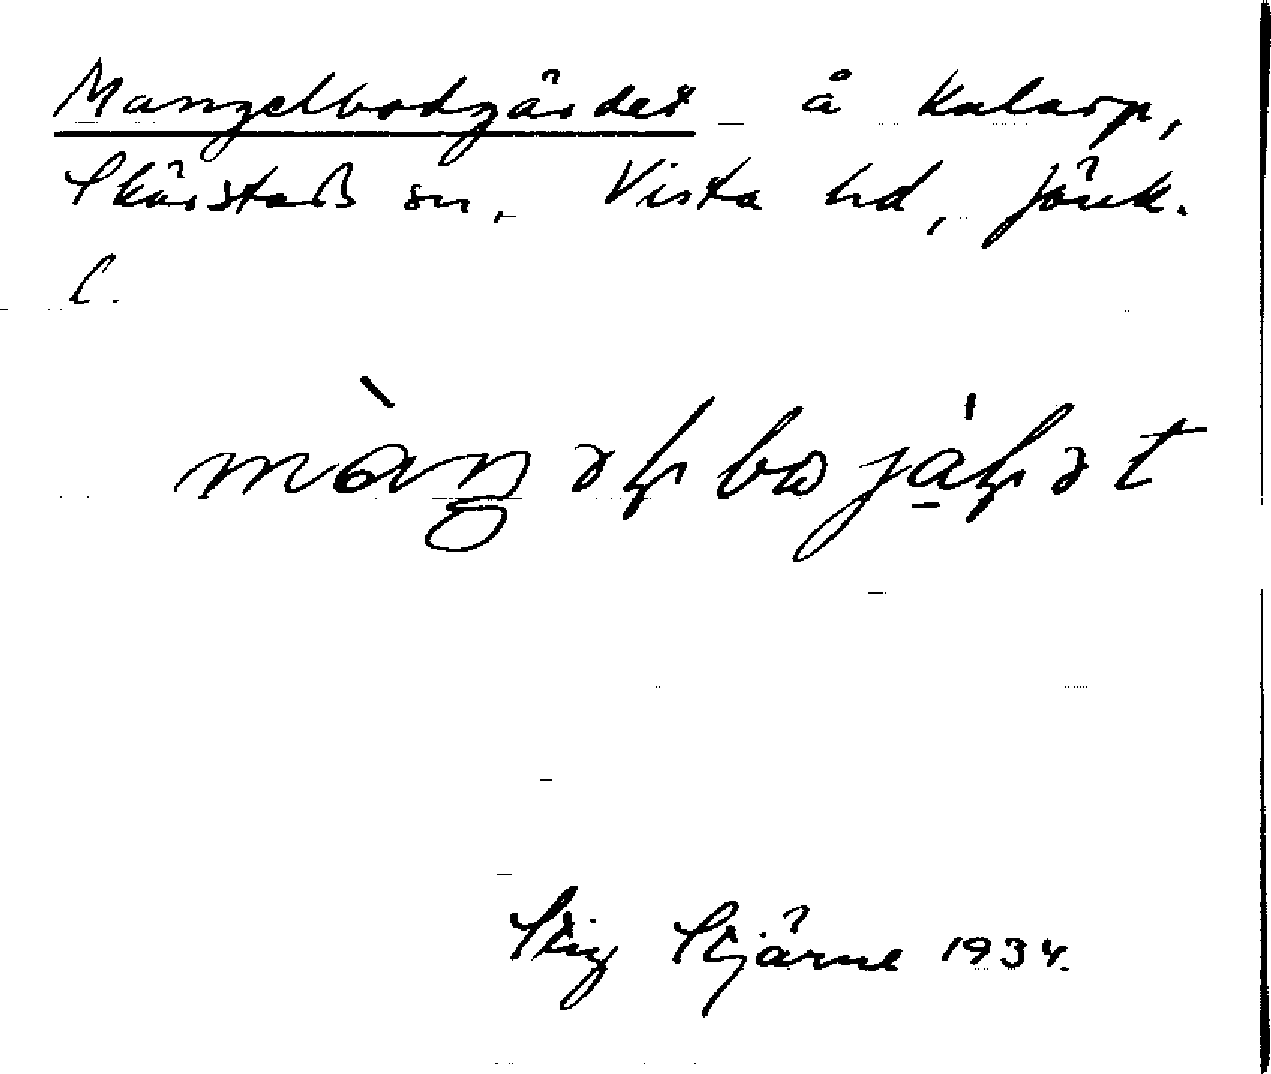 Mangelbodgärdet å Kalarp,
Skärstads sn, Vista hd, Jönk.
l.
Stig Stjärne 1934.